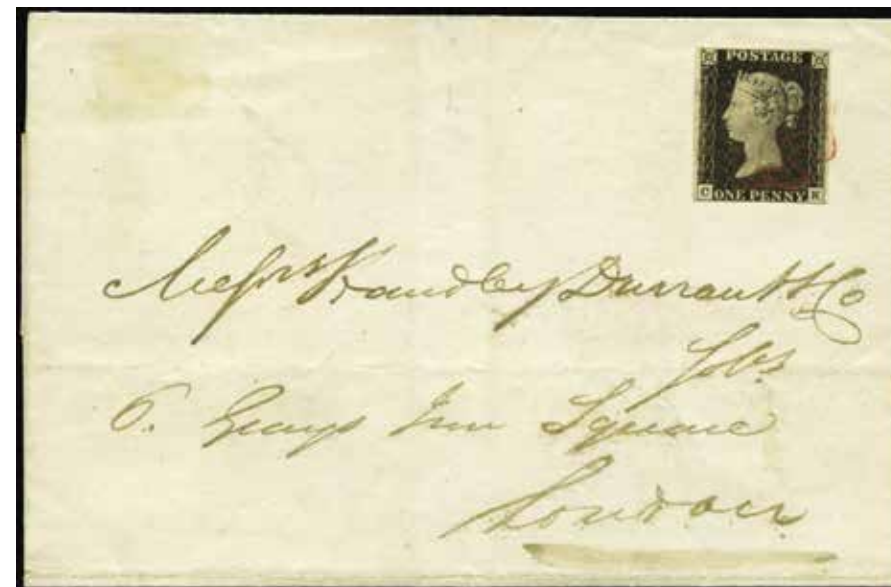 POSTAGE
C ONE PENNY K
Messrs Handley Durrant & Co
Solrs
6. Grays Inn Square
London